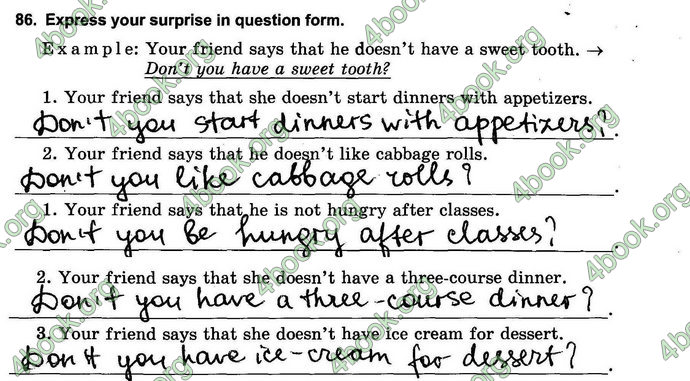 86. Express your surprise in question form.
Example: Your friend says that he doesn't have a sweet tooth. →
Don't you have a sweet tooth?
1. Your friend says that she doesn't start dinners with appetizers.
Don't you start dinners with appetizers?.
2. Your friend says that he doesn't like cabbage rolls.
Don't you like cabbage rolls?.
1. Your friend says that he is not hungry after classes.
Don't you be hungry after classes?.
2. Your friend says that she doesn't have a three-course dinner.
Don't you have a three-course dinner?.
3. Your friend says that she doesn't have ice cream for dessert.
Don't you have ice-cream for dessert?.
4book.org
4book.org
4book.org
4book.org
4book.org
4book.org
4book.org